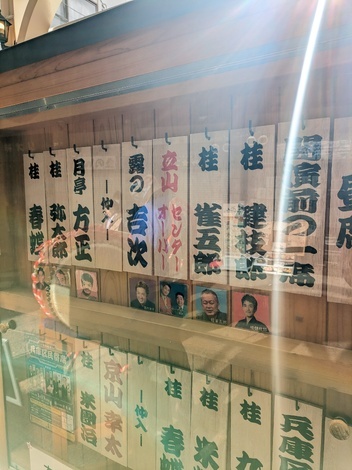 昼席
前の一席
桂 健枝郎
桂 雀五郎
立山 センター
オーバー
露の吉次
―仲入―
月亭 方正
桂 弥太郎
桂 春蝶
兵庫
桂 九
桂 米
桂 春
―仲入―
京山 幸太
桂 米團治